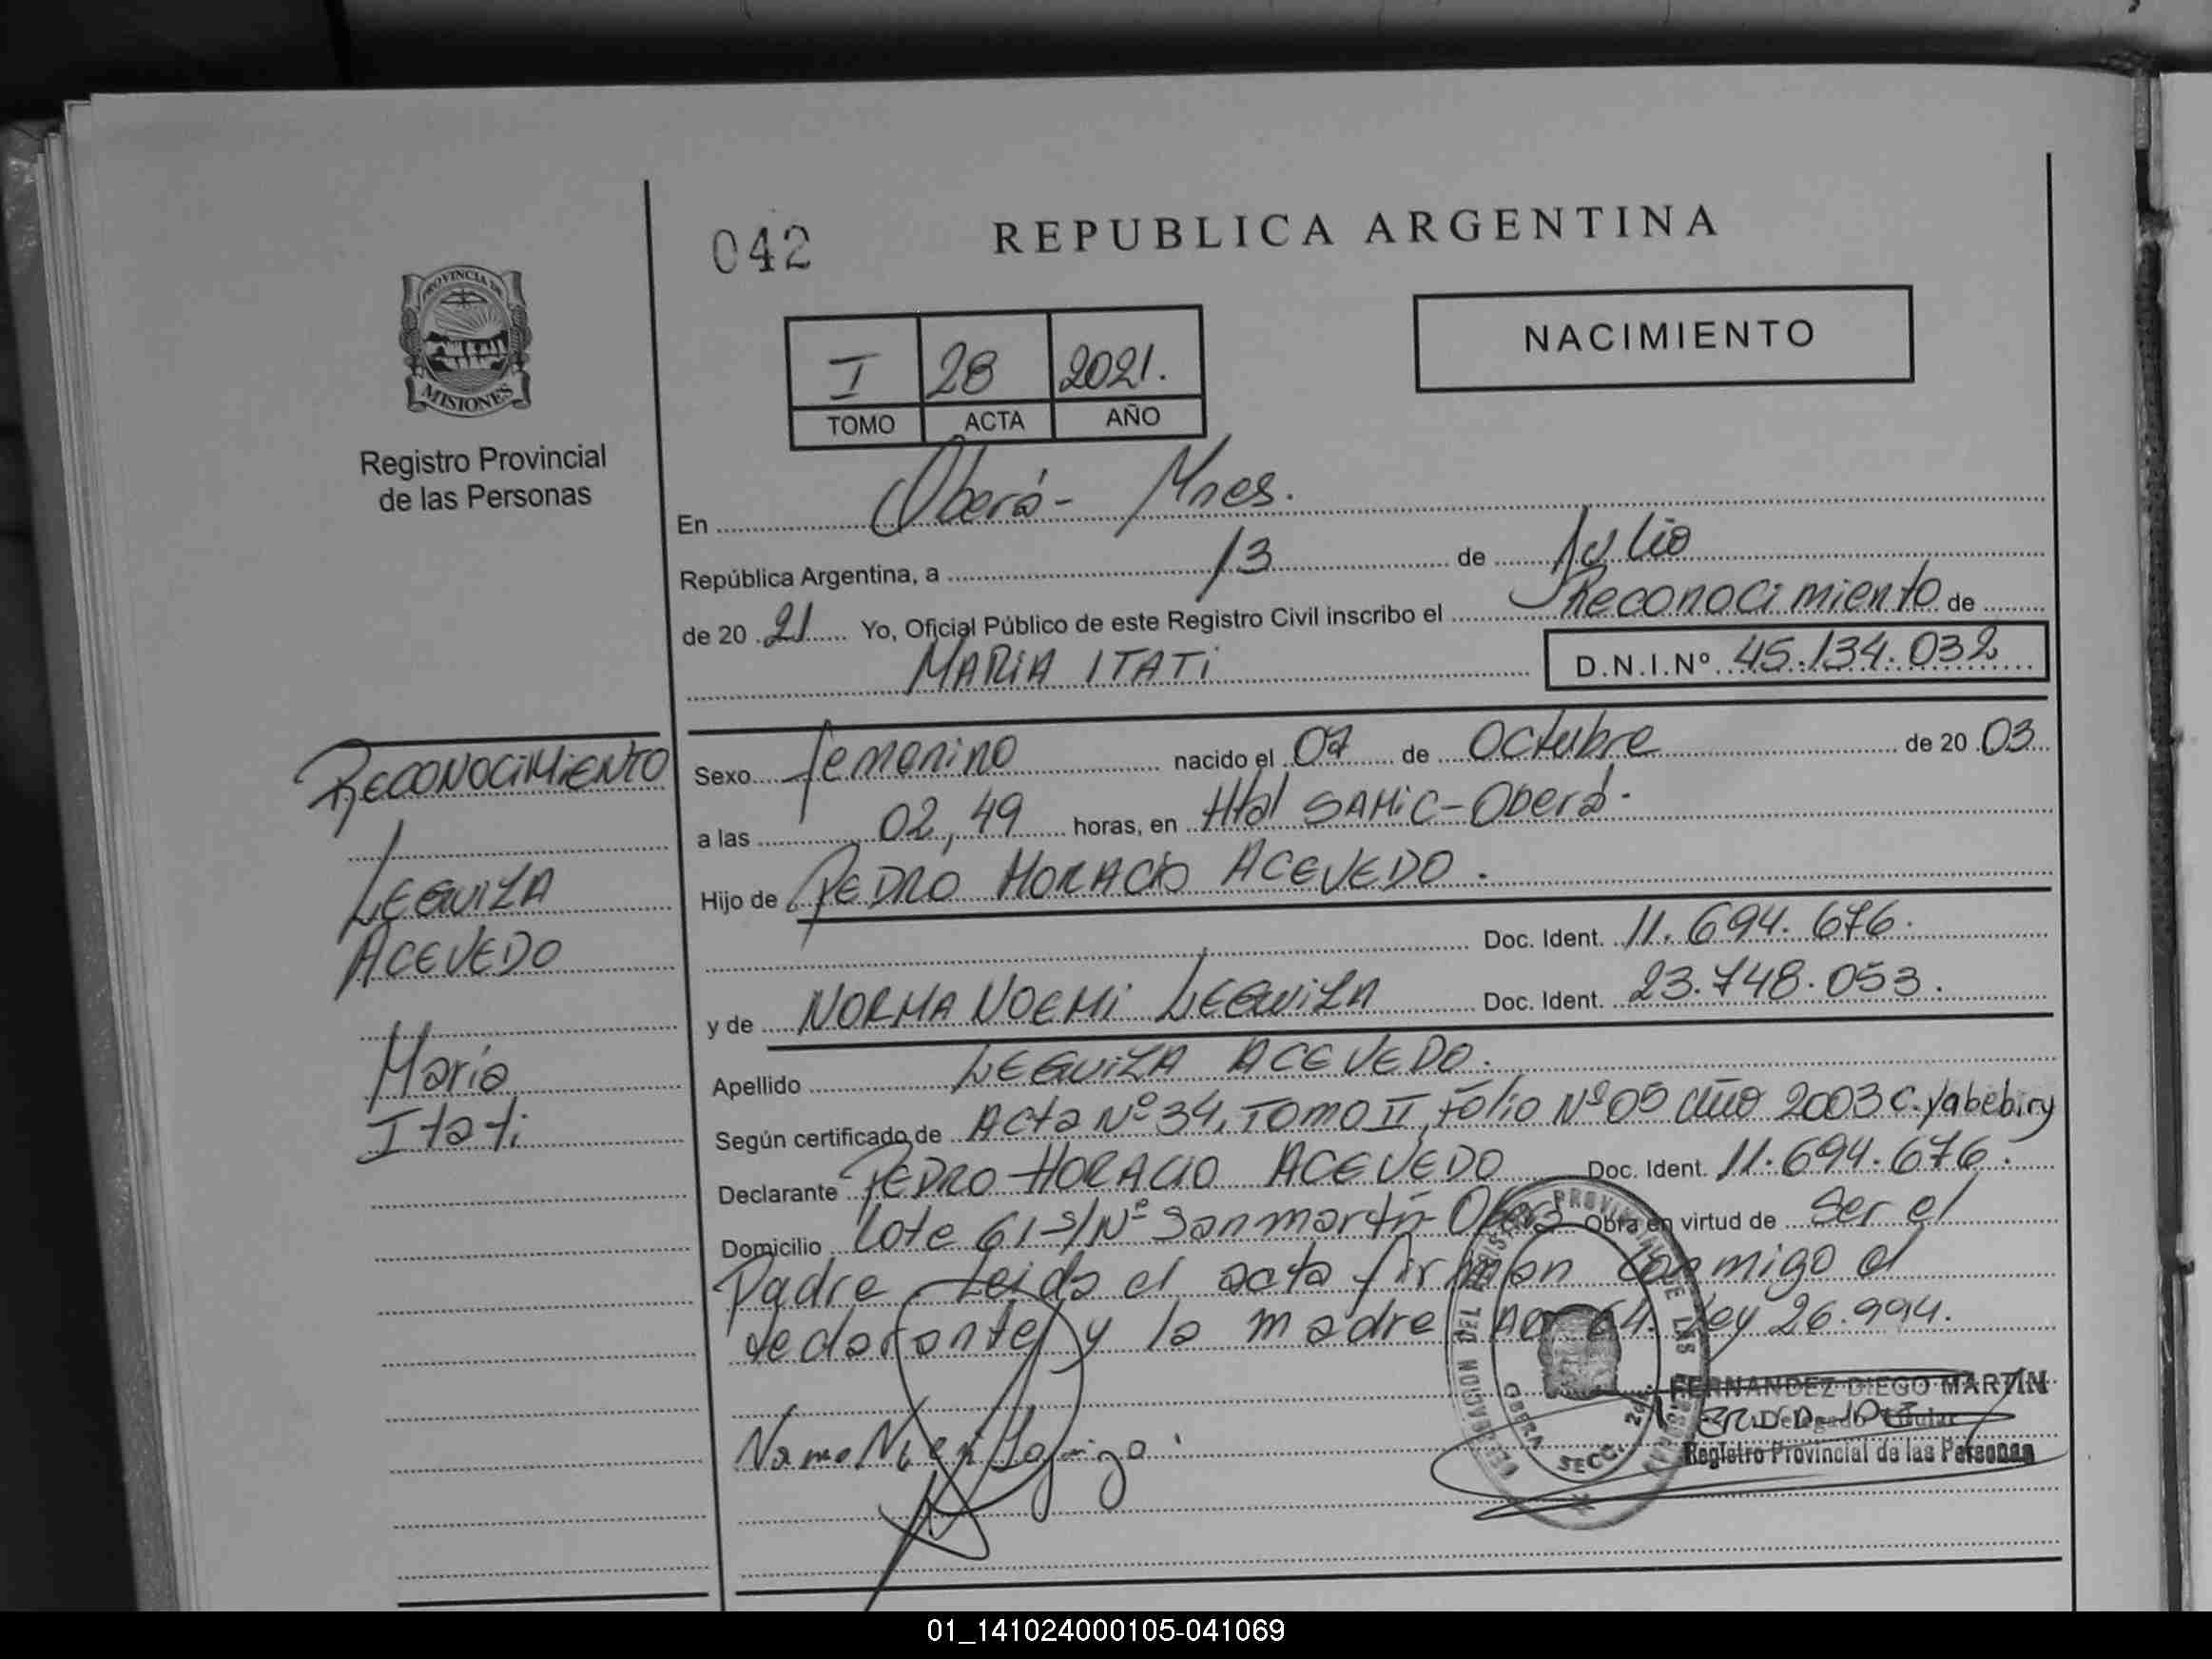 042
REPUBLICA ARGENTINA
PROVINCIA DE
MISIONES
Registro Provincial
de las Personas
I 28 2021.
TOMO ACTA AÑO
NACIMIENTO
En Oberá - Mnes.
República Argentina, a 13 de Julio
de 20 21 Yo, Oficial Público de este Registro Civil inscribo el Reconocimiento de
MARIA ITATI D.N.I.Nº 45.134.032
RECONOCIMIENTO
LEGUIZA
ACEVEDO
María
Itati
Sexo femenino nacido el 07 de Octubre de 20 03
a las 02,49 horas, en Htal SAMIC - Oberá.
Hijo de PEDRO HORACIO ACEVEDO.
Doc. Ident. 11.694.676.
y de NORMA NOEMI LEGUIZA Doc. Ident. 23.748.053.
Apellido LEGUIZA ACEVEDO.
Según certificado de Acta Nº 34, TOMO II, Folio Nº 05 año 2003 C. Yabebiry
Declarante PEDRO HORACIO ACEVEDO Doc. Ident. 11.694.676.
Domicilio Lote 61 S/Nº San martín - Oberá Obra en virtud de Ser el
Padre Leida el acta firman conmigo el
declarante y la madre 64. Ley 26.994.
FERNANDEZ DIEGO MARTIN
Delegado Titular
Registro Provincial de las Personas
OBERA SECC. 2da
01_141024000105-041069